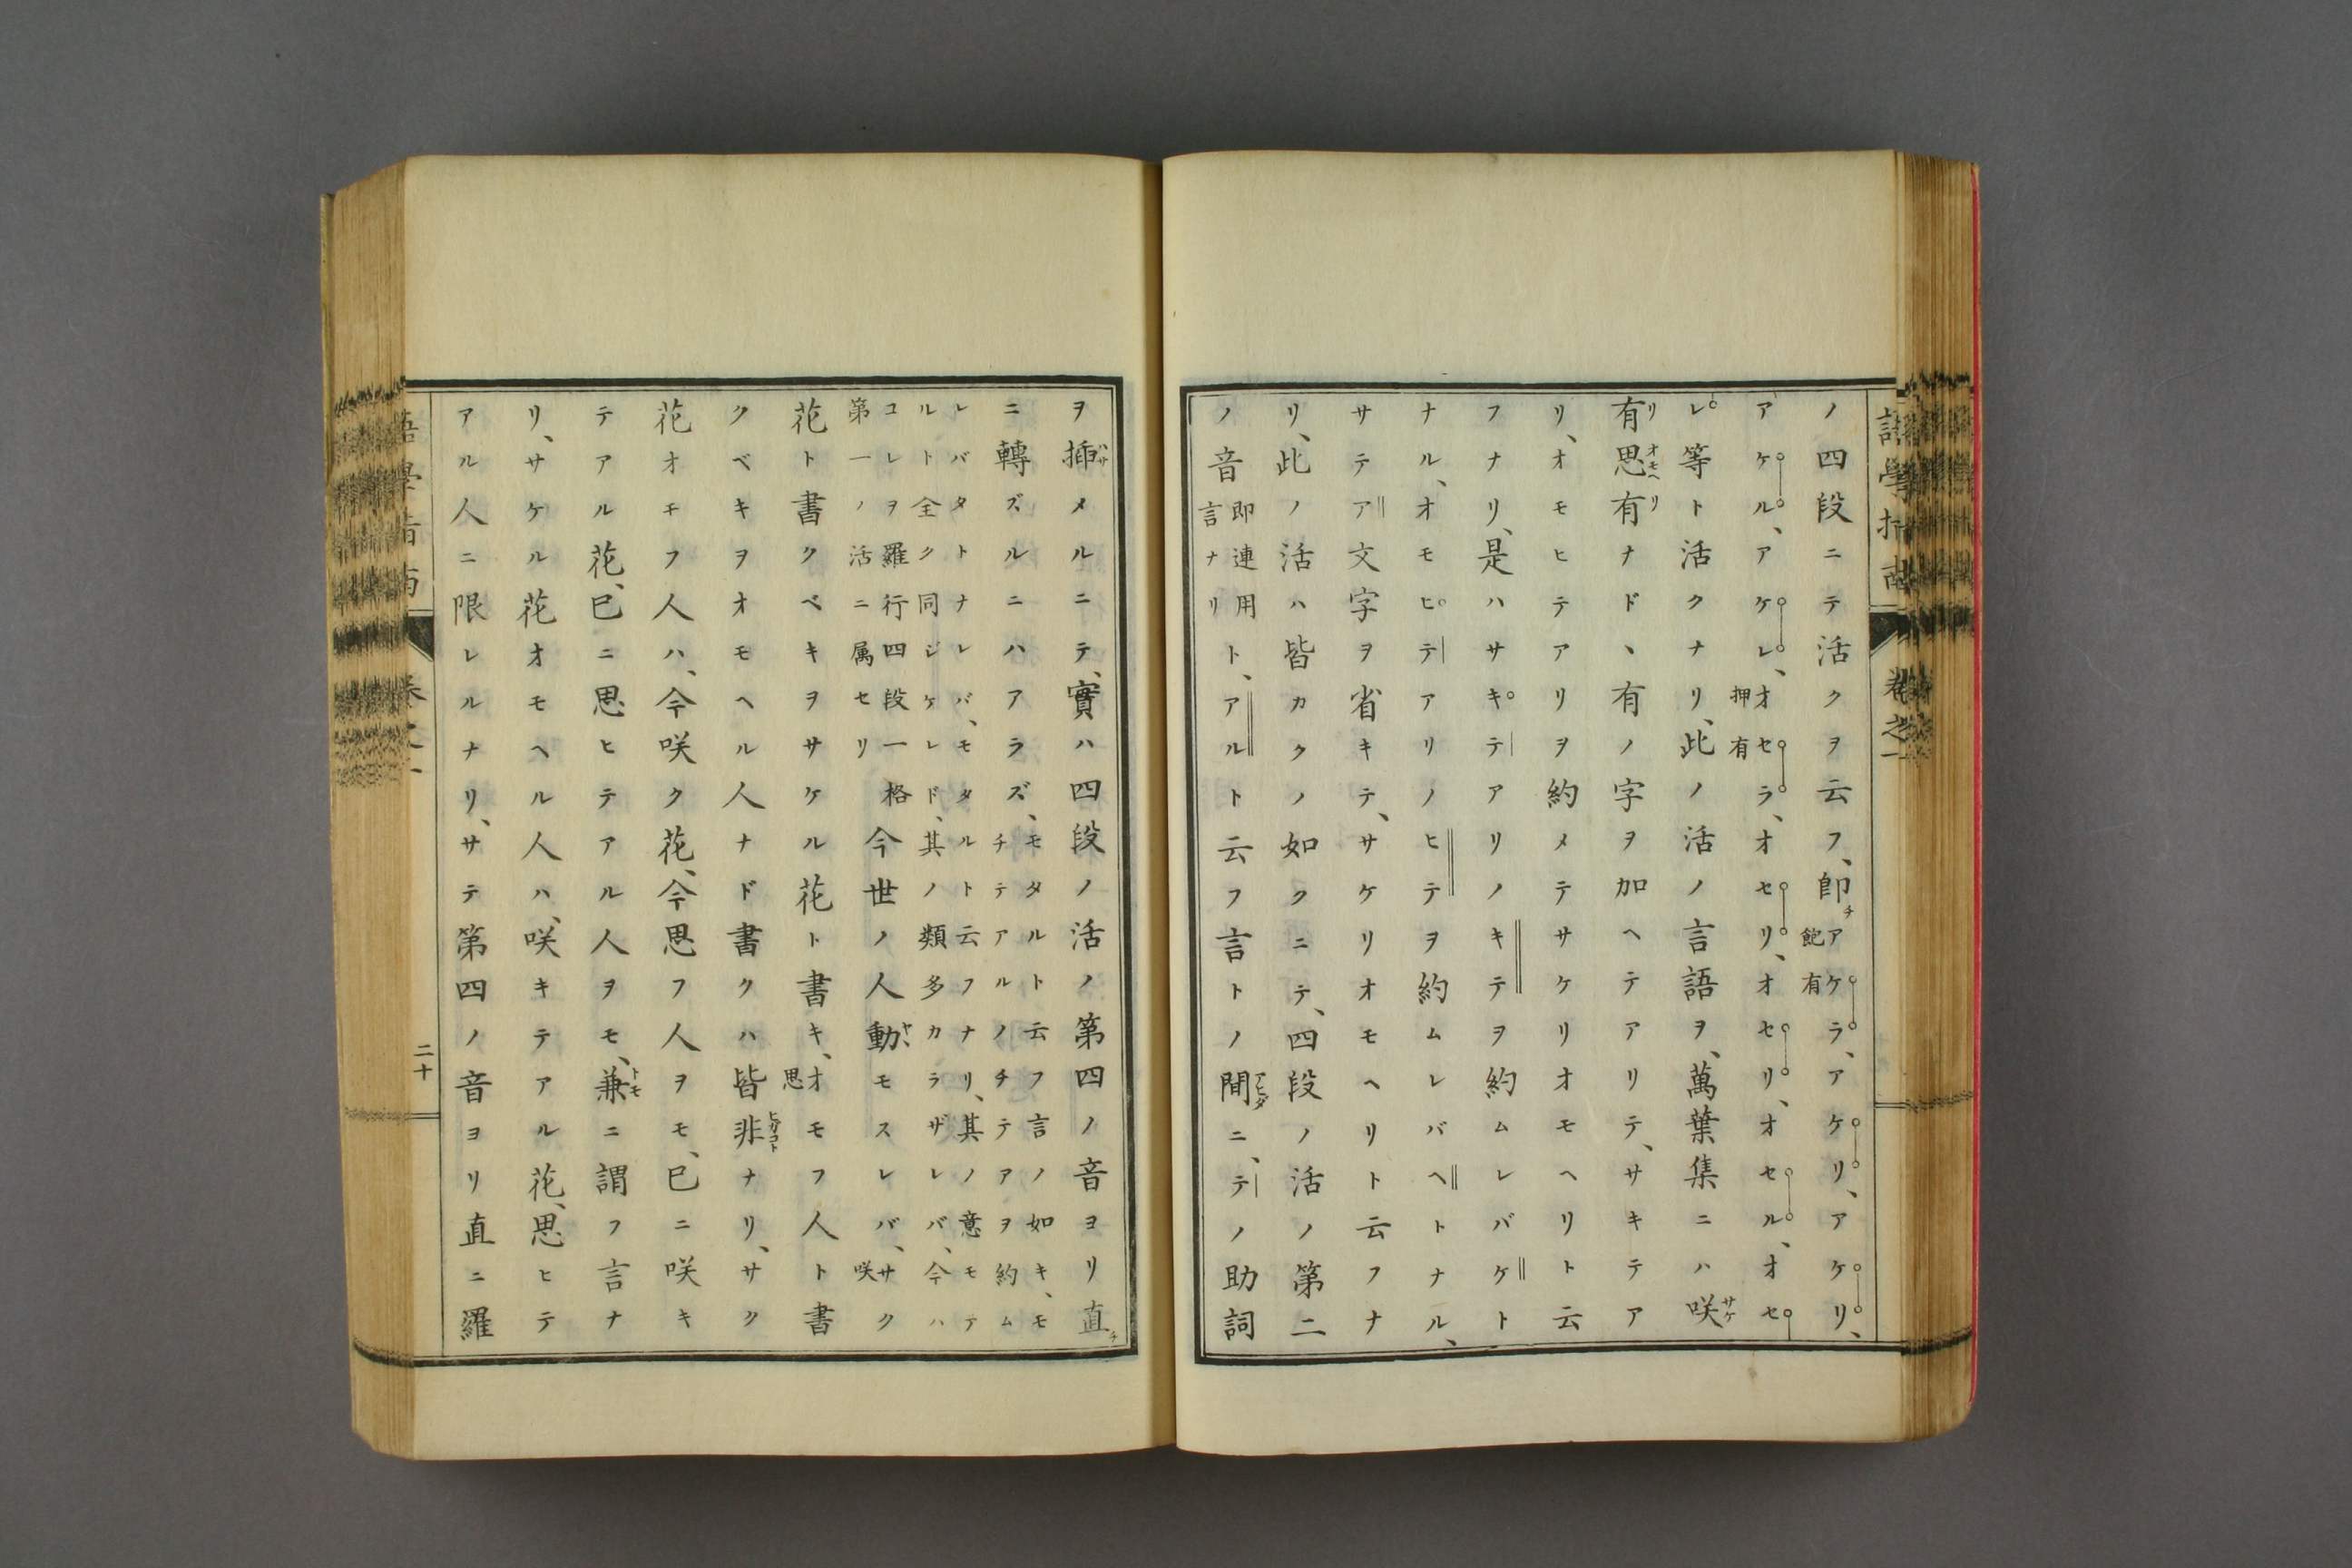 ノ四段ニテ活クヲ云フ、即チアケラ、アケリ、アケリ、
飽有
アケル、アケレ、オセラ、オセリ、オセリ、オセル、オセ
押有
レ等ト活クナリ、此ノ活ノ言語ヲ、萬葉集ニハ咲サケ
有リ思オモヘ有リナド、有ノ字ヲ加ヘテアリテ、サキテア
リ、オモヒテアリヲ約メテサケリオモヘリト云
フナリ、是ハサキテアリノキテヲ約ムレバケト
ナル、オモヒテアリノヒテヲ約ムレバヘトナル、
サテア文字ヲ省キテ、サケリオモヘリト云フナ
リ、此ノ活ハ皆カクノ如クニテ、四段ノ活ノ第二
ノ音即連用言ナリト、アルト云フ言トノ間アヒダニ、テノ助詞
ヲ揷ハサメルニテ、實ハ四段ノ活ノ第四ノ音ヨリ直チ
ニ轉ズルニハアラズ、モタルト云フ言ノ如キ、モ
チテアルノチテアヲ約ム
レバタトナレバ、モタルト云フナリ、其ノ意モテ
ルト全ク同ジケレド、其ノ類多カラザレバ、今ハ
コレヲ羅行四段一格
第一ノ活ニ属セリ
今世ノ人動ヤヽモスレバ、サク
咲
花ト書クベキヲサケル花ト書キ、オモフ人ト書
思
クベキヲオモヘル人ナド書クハ皆非ヒガコトナリ、サク
花オモフ人ハ、今咲ク花、今思フ人ヲモ、已ニ咲キ
テアル花、已ニ思ヒテアル人ヲモ、兼トモニ謂フ言ナ
リ、サケル花オモヘル人ハ、咲キテアル花、思ヒテ
アル人ニ限レルナリ、サテ第四ノ音ヨリ直ニ羅
二十